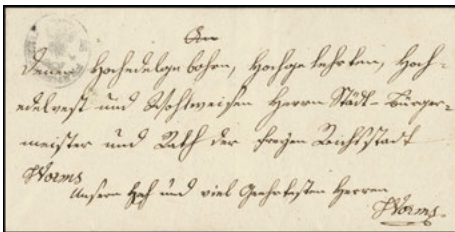 An
Denen Hochedelgebohrn, Hochgelehrten, Hoch=
edelvest und Wohlweisen Herrn Städt-Bürger=
meister und Rath der freyen Reichsstadt
Worms
Unsern Hoch und viel Geehrtesten Herren
Worms.